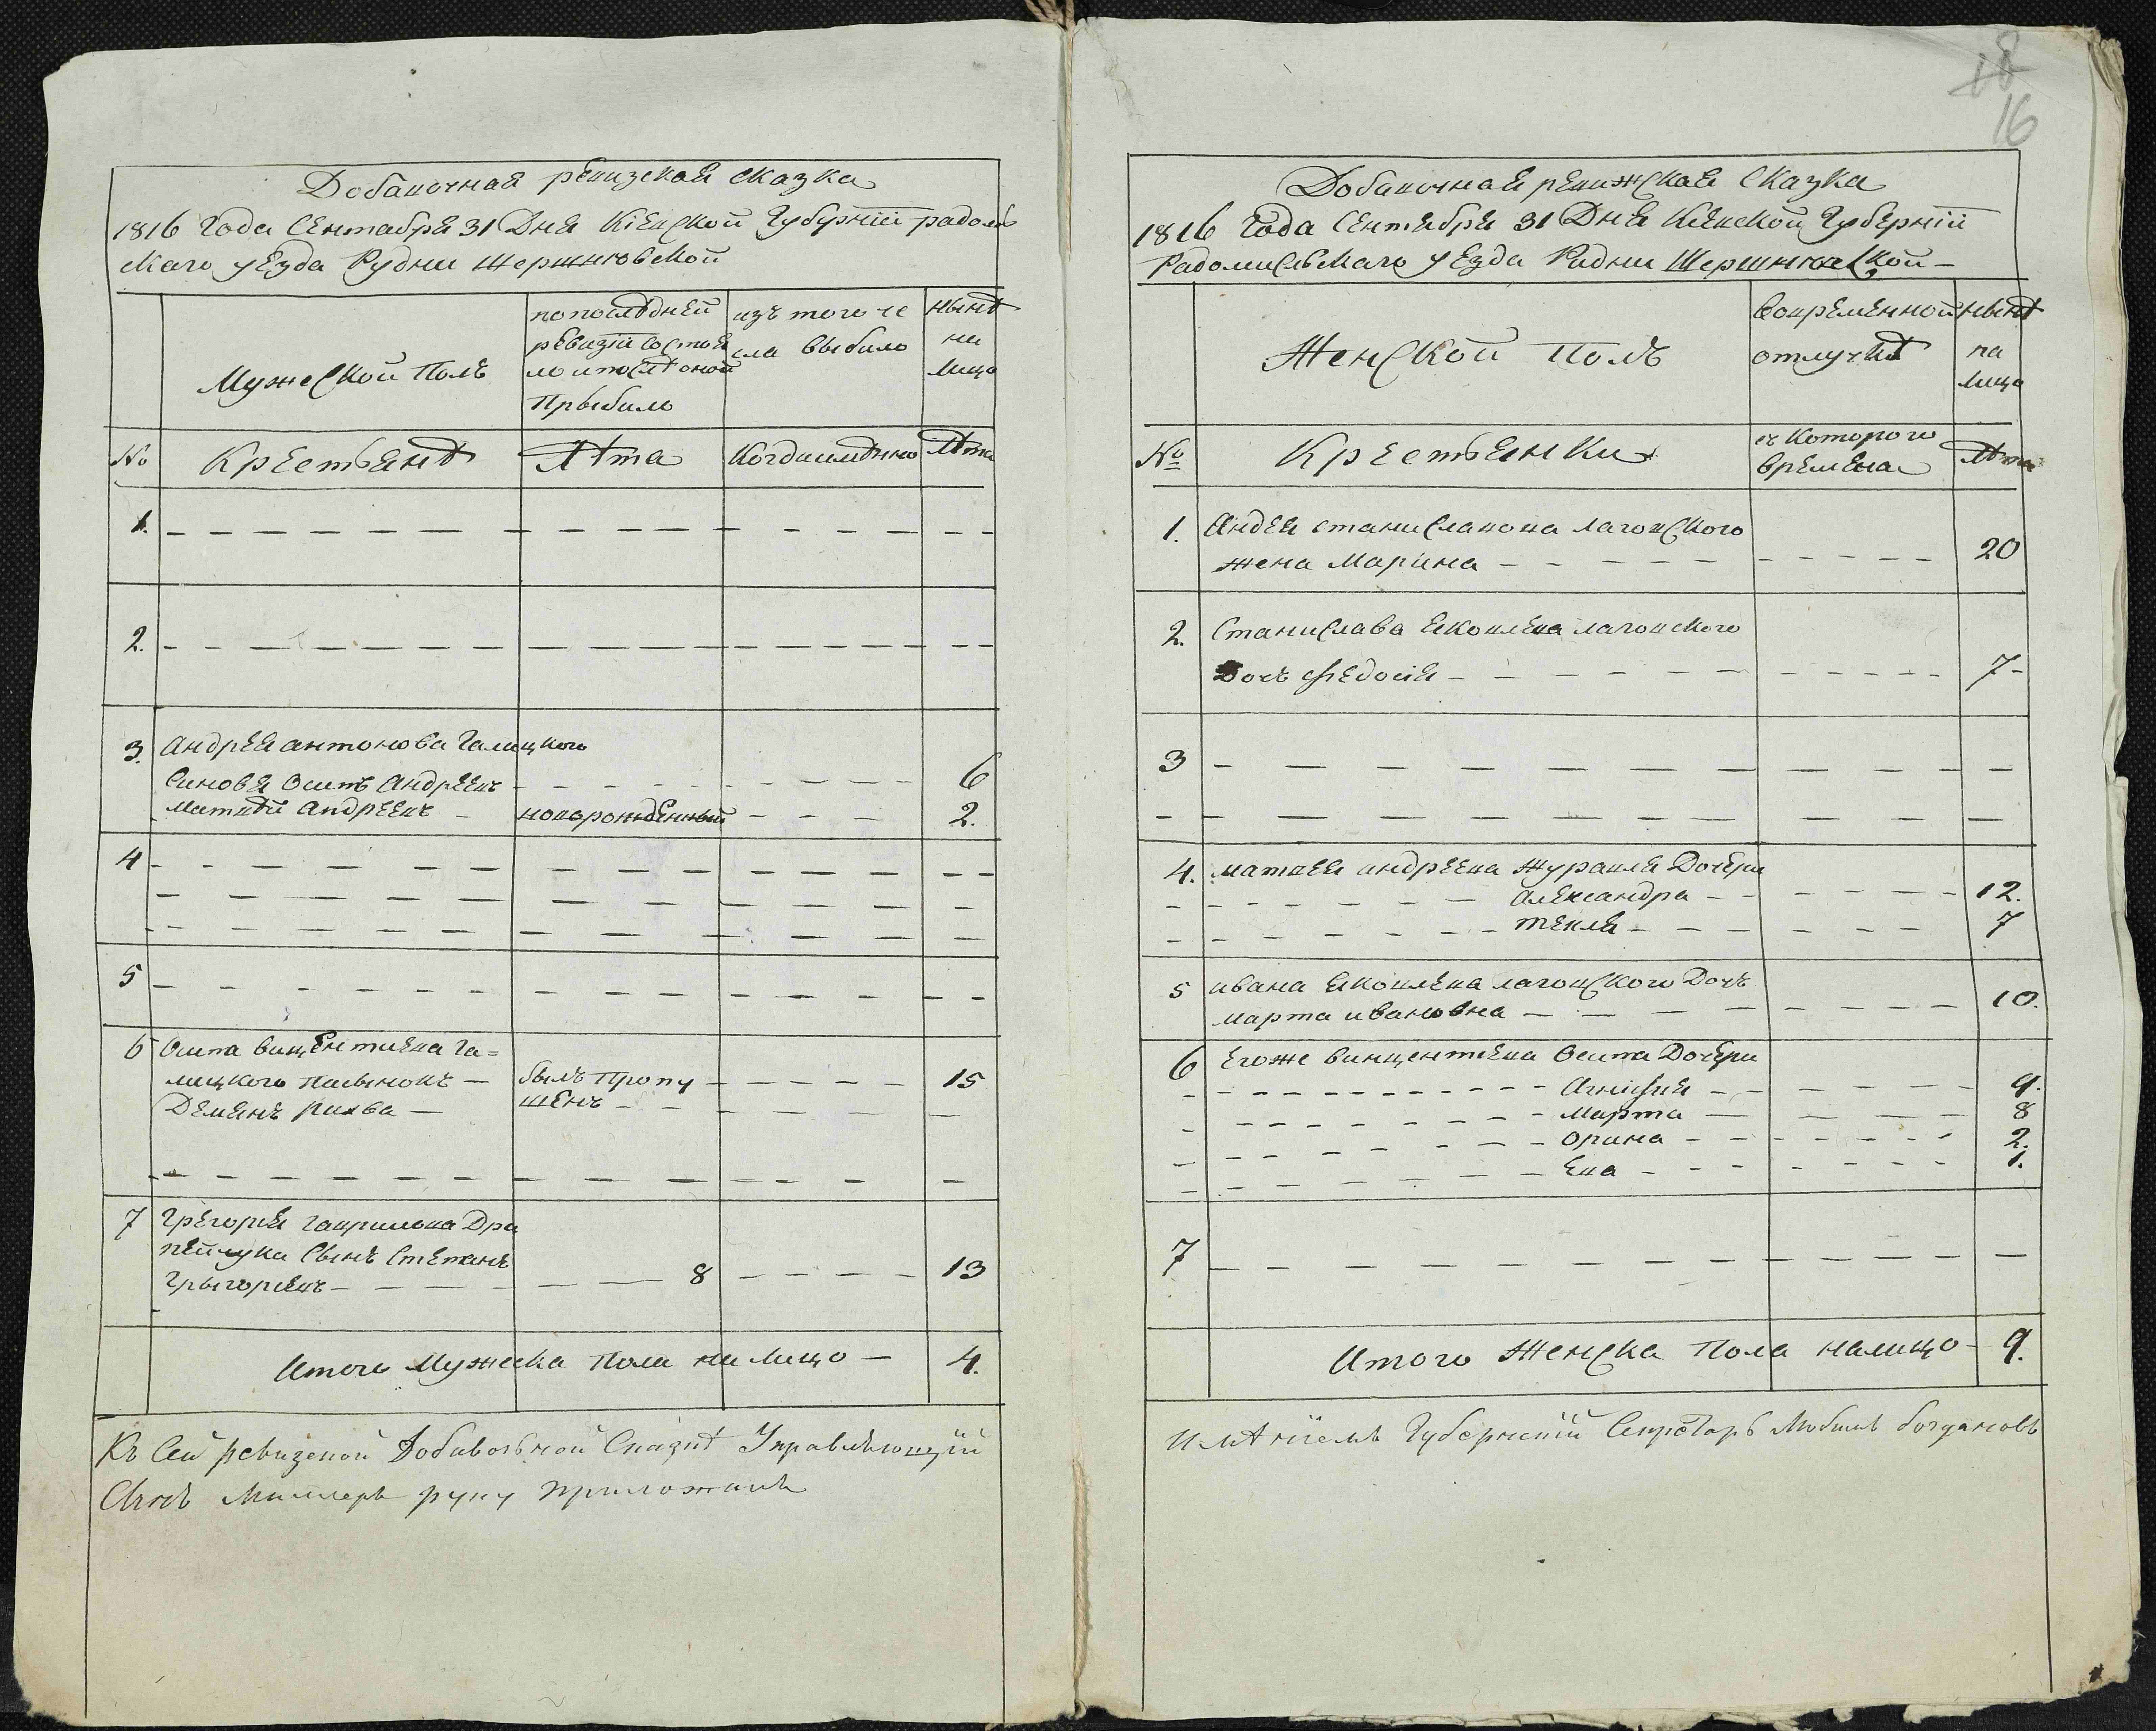 18
16
Добавочная ревизская сказка
1816 Года Сентабря 31 Дня Кіевской Губерніи радомы
скаго уезда Рудни шершнювской
Мужеской Полъ
попослѣдней
ревизіи состоя
ло ипослѣ оной
Прыбыло
изъ того чи
сла выбыло
нынѣ
на
лицо
№
Крестьянѣ
Лѣта
Когдаимянно
Лѣта
1.
2.
3. андрея антонова Галицкого
Синовя Осипъ андреевъ 6
матвѣй андреевъ новорожденный 2.
4
5
6 Осипа винцентиева Га=
лицкого Пасынокъ былъ Пропу 15
Демянъ шенъ
7 Грегория гаврилова Дра
пейчука Сынъ Степанъ
Грыгориевъ 8 13
Итого Мужеска Пола на лицо 4.
Къ Сей ревизской Добавочной Сказкѣ Управляющій
руку приложилъ
Добавочная ревижская Сказка
1816 Года Сентября 31 Дня Кіевской Губерніи
Радомисльскаго уезда Радни Шершнювской
Женской Полъ
Вовременной
отлучкѣ
нынѣ
на
лицо
№
Крестьянки
съ Которого
времена
Лѣта
1. Андея станиславова лаговского
жена Марина 20
2. Станислава яковлева лаговского
Дочъ федосія 7
3
4. матвея андреева журавля Дочери
александра 12.
текля 7
5 ивана яковлева лаговского Дочъ
марта ивановна 10.
6 Егоже винцентева Осипа Дочери
Агніфия 9.
Марта 8
Орина 2.
Ева 1.
7
Итого Женска Пола налицо 9.
Имѣніемъ Губернскій Секретарь Богдановъ